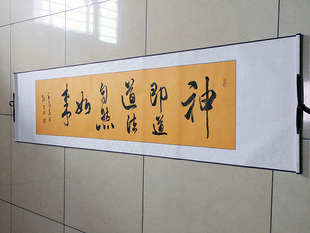 神
即道
道法
自然
如
来